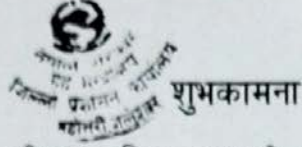 नेपाल सरकार
गृह मन्त्रालय
जिल्ला प्रशासन कार्यालय
महोत्तरी, जलेश्वर
शुभकामना